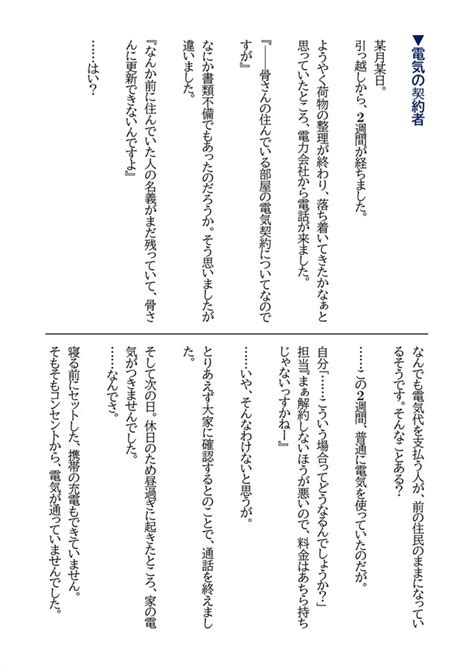 ▼電気の契約者
某月某日。
引っ越しから、2週間が経ちました。
ようやく荷物の整理が終わり、落ち着いてきたかなぁと
思っていたところ、電力会社から電話が来ました。
『――骨さんの住んでいる部屋の電気契約についてなので
すが』
なにか書類不備でもあったのだろうか。そう思いましたが
違いました。
『なんか前に住んでいた人の名義がまだ残っていて、骨さ
んに更新できないんですよ』
……はい?
なんでも電気代を支払う人が、前の住民のままになってい
るそうです。そんなことある?
……この2週間、普通に電気を使っていたのだが。
自分「……こういう場合ってどうなるんでしょうか?」
担当『まぁ解約しないほうが悪いので、料金はあちら持ち
じゃないっすかねー』
……いや、そんなわけないと思うが。
とりあえず大家に確認するとのことで、通話を終えまし
た。
そして次の日。休日のため昼過ぎに起きたところ、家の電
気がつきませんでした。
……なんでさ。
寝る前にセットした、携帯の充電もできていません。
そもそもコンセントから、電気が通っていませんでした。